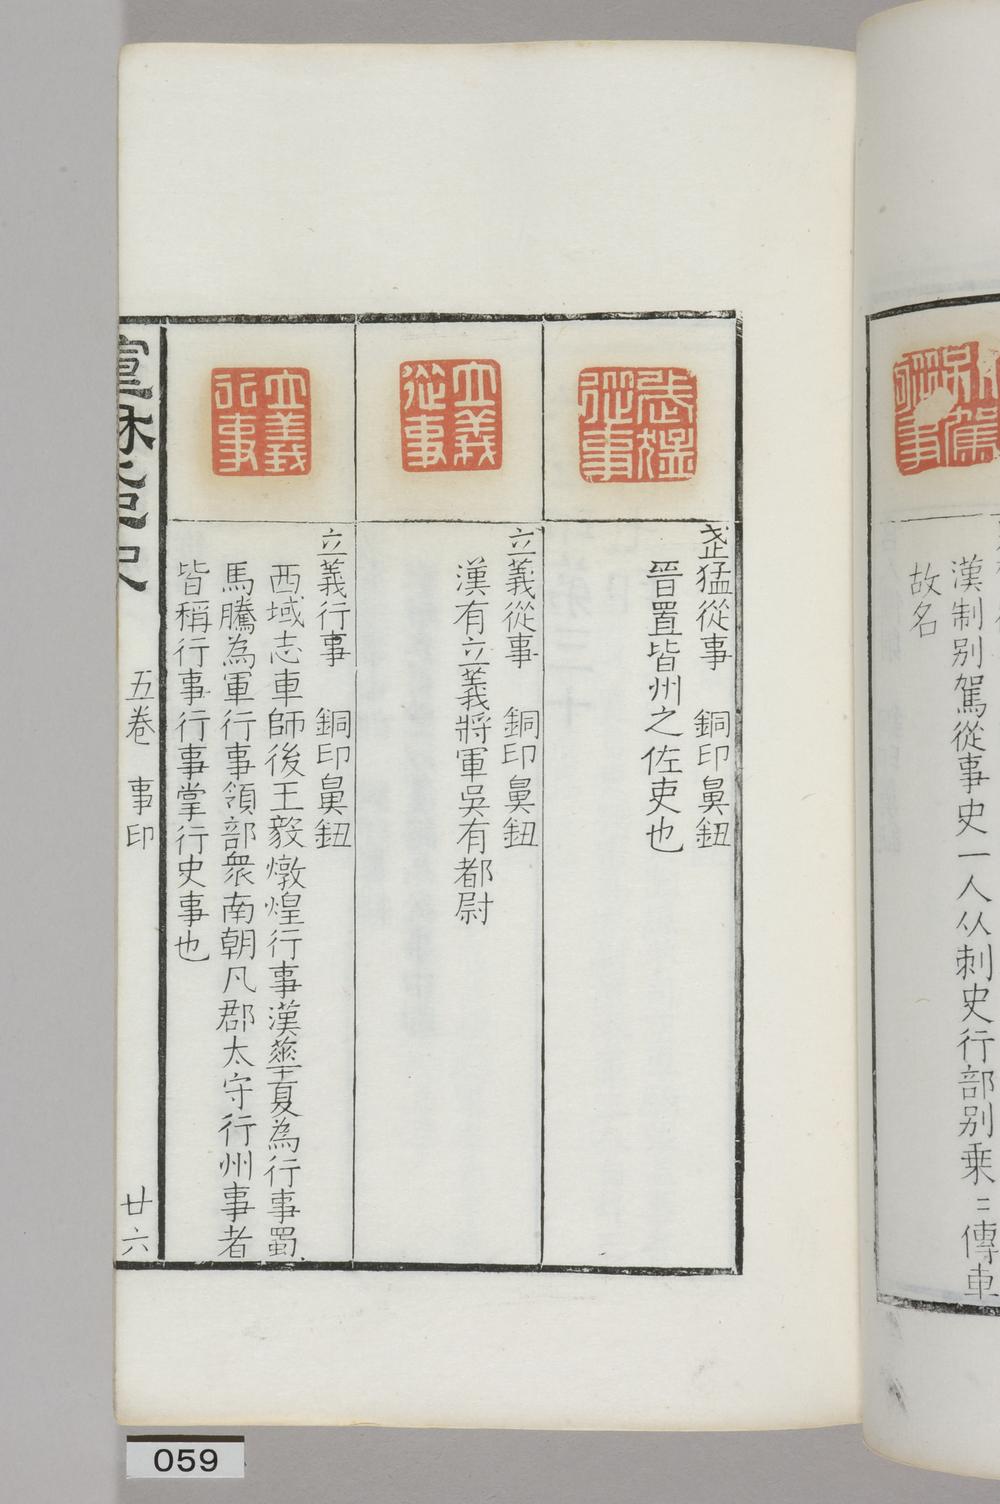 漢制別駕從事史一人从刺史行部別乗〻傳車
故名
武猛從事
武猛從事　銅印鼻鈕
晉置皆州之佐吏也
立義從事
立義從事　銅印鼻鈕
漢有立義將軍吳有都尉
立義行事
立義行事　銅印鼻鈕
西域志車師後王毅燉煌行事漢華夏為行事蜀
馬騰為軍行事領部衆南朝凡郡太守行州事者
皆稱行事行事掌行史事也
五卷　事印
廿六
059